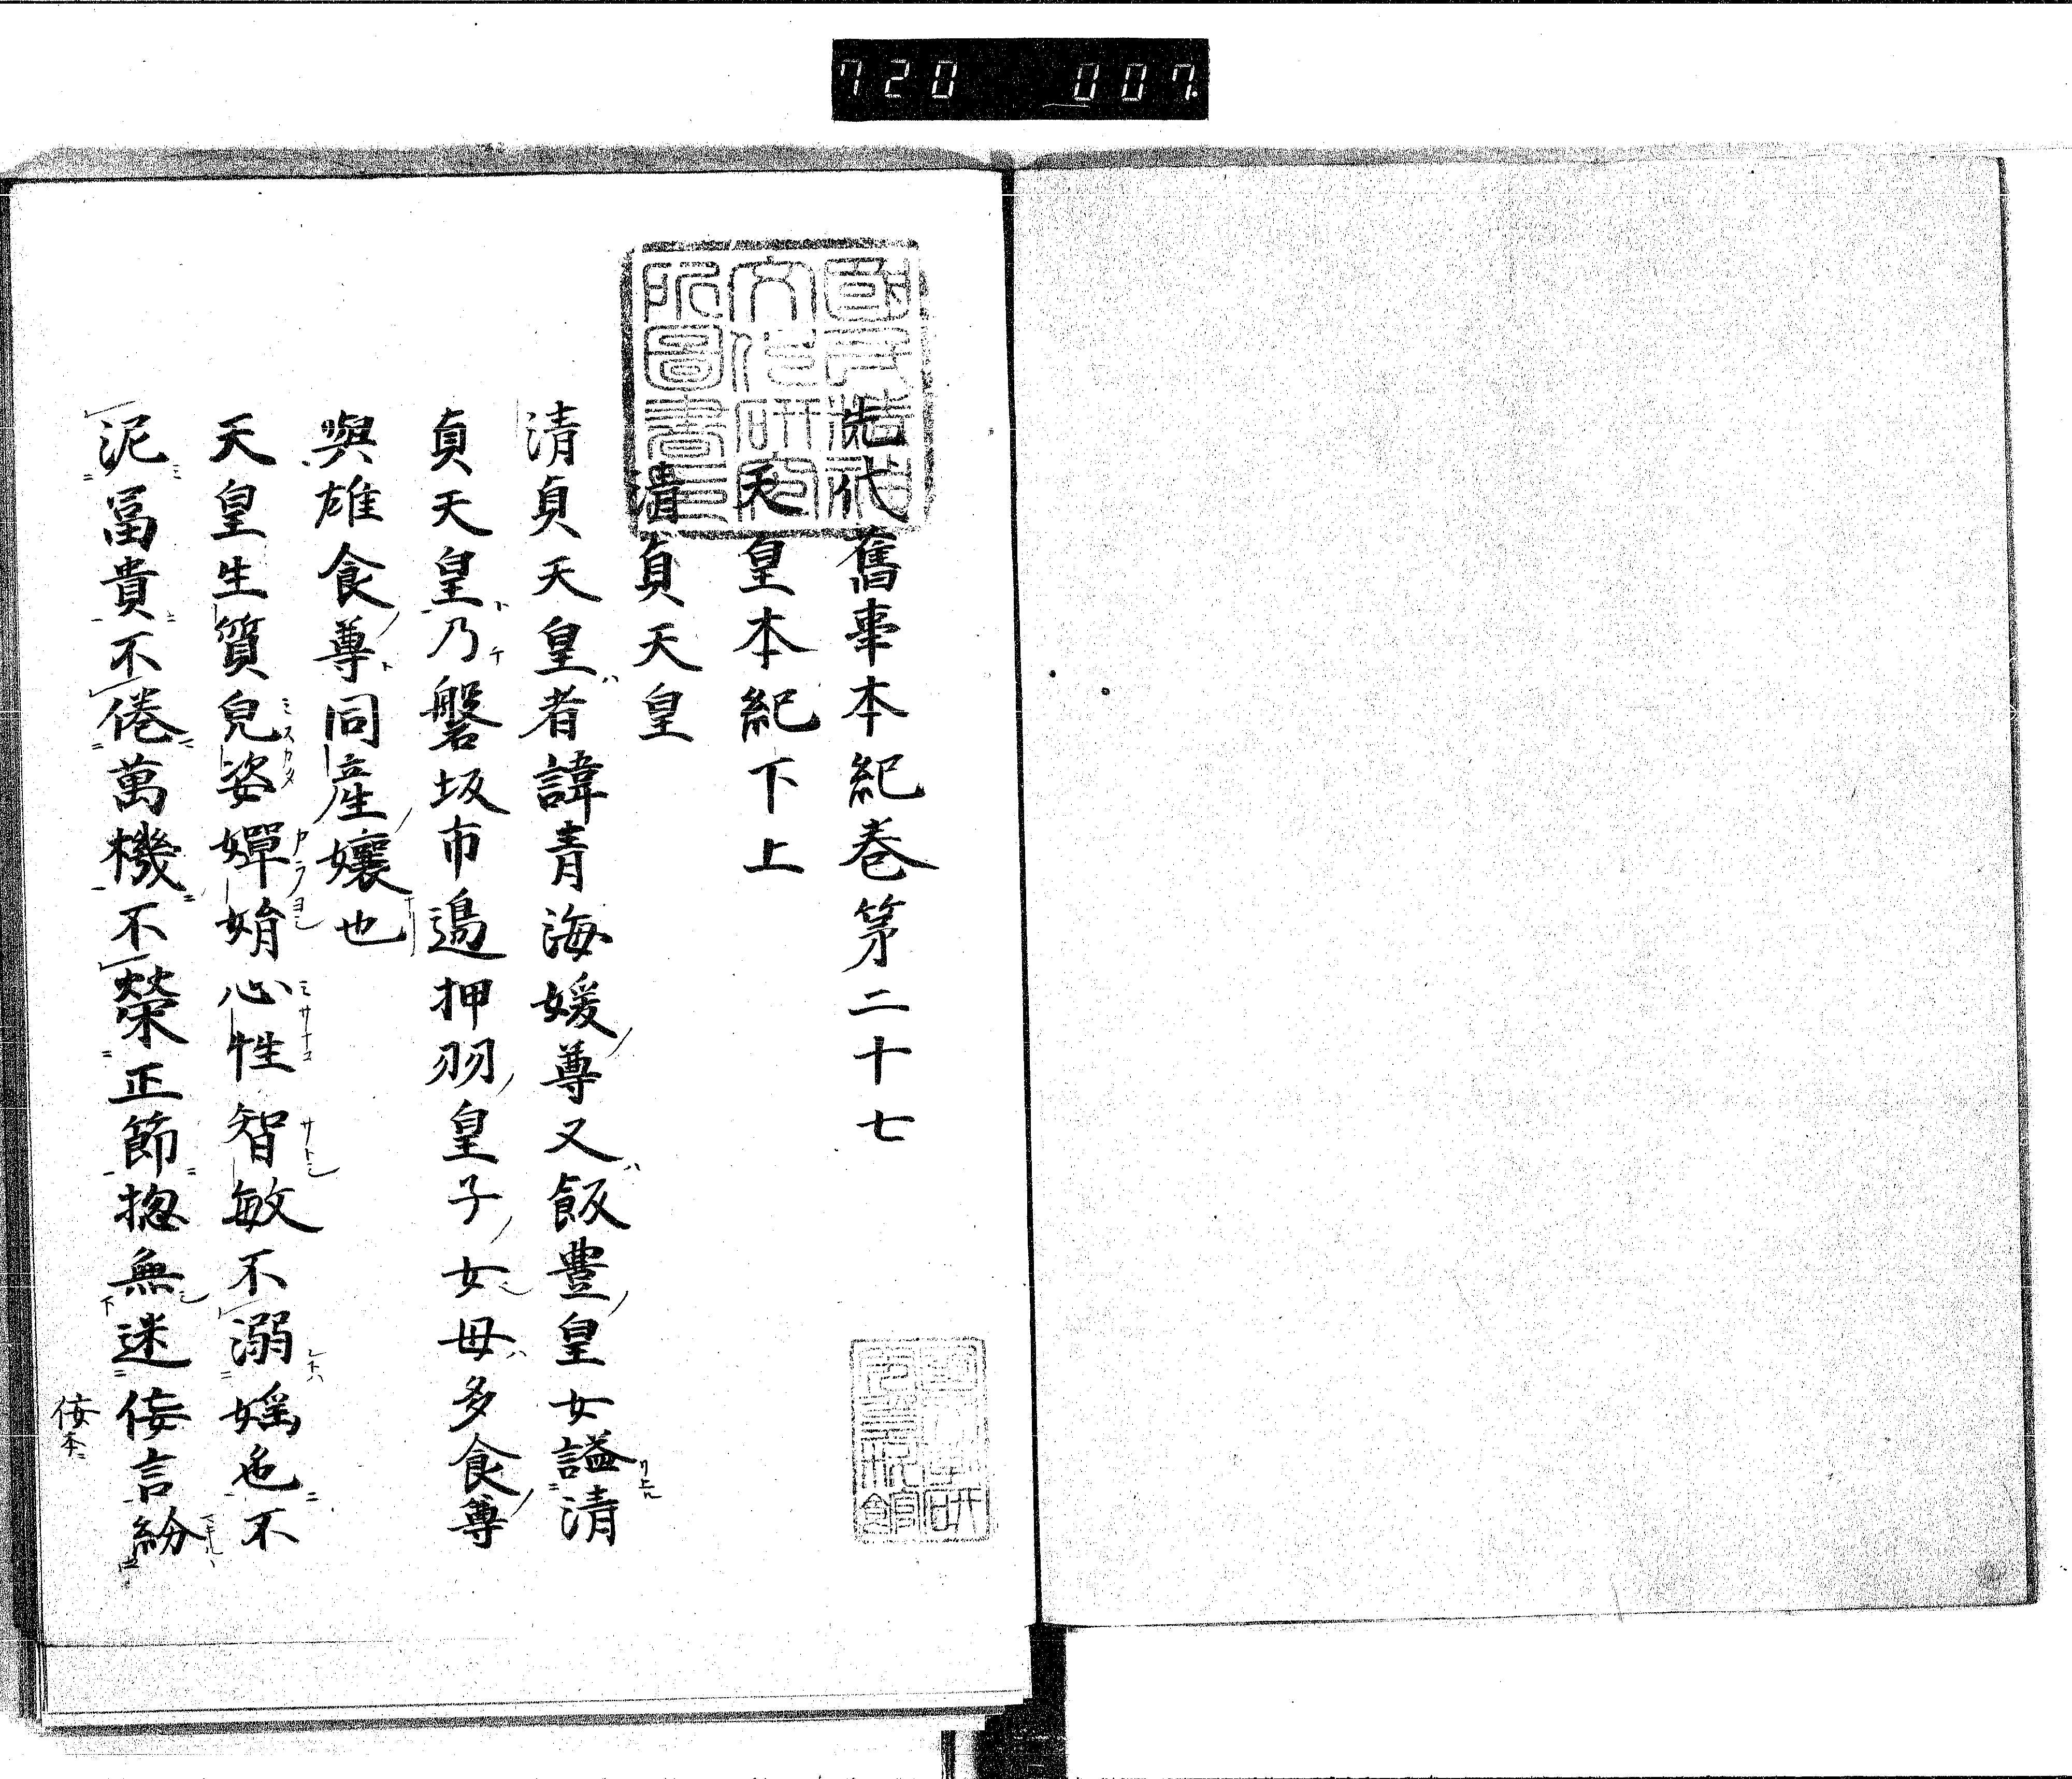 720 007
先代舊事本紀巻第二十七
天皇本紀下上
清貞天皇
清貞天皇者諱青海媛尊又飯豊皇女謚清
貞天皇乃磐坂市邉押羽皇子女母多食尊
與雄食尊同産孃也
天皇生質皃姿嬋娟心性智敏不溺婬色不
泥冨貴不倦萬機不榮正節揔無迷侫言紛
侫本